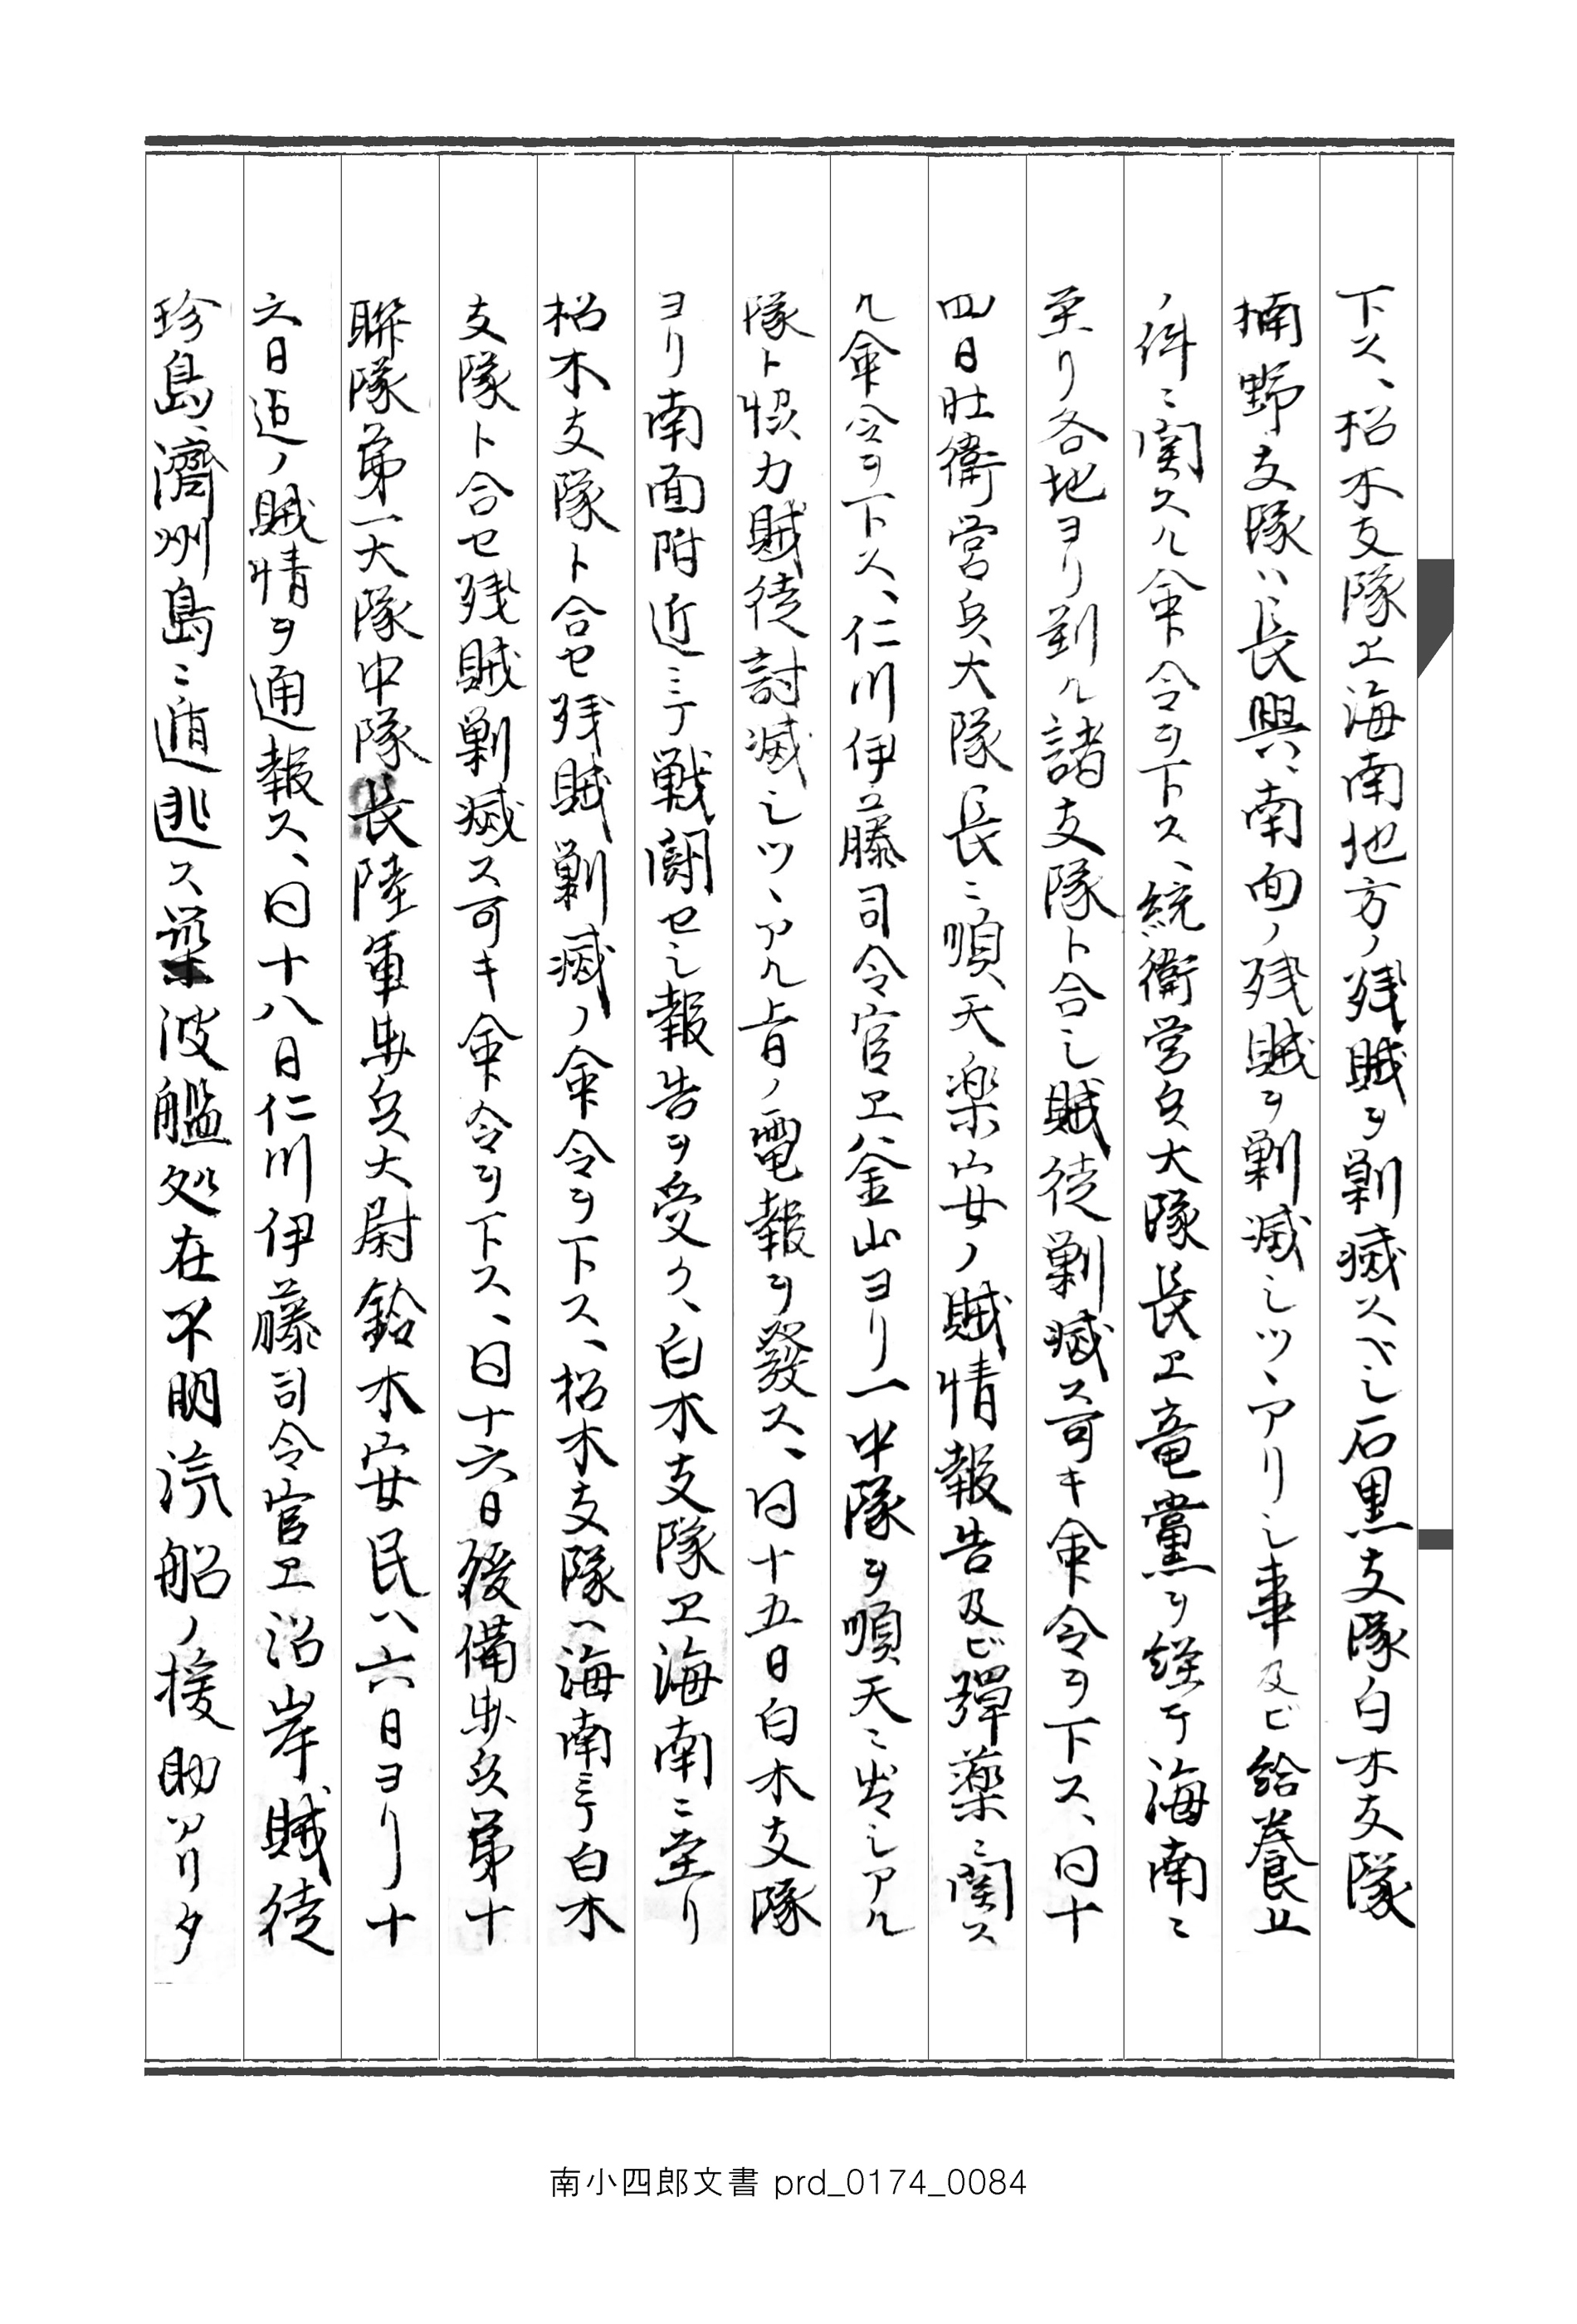 下ス、松木支隊エ海南地方ノ残賊ヲ剿滅スベシ石黒支隊白木支隊
楠野支隊ハ長興、南面ノ残賊ヲ剿滅シツヽアリシ事及ビ給養上
ノ件ニ関スル命令ヲ下ス、統衛営兵大隊長エ竜黨ヲ経テ海南ニ
至リ各地ヨリ到ル諸支隊ト合シ賊徒剿滅ス可キ命令ヲ下ス、同十
四日壮衛営兵大隊長ニ順天楽安ノ賊情報告及ビ弾薬ニ関ス
ル命令ヲ下ス、仁川伊藤司令官エ釜山ヨリ一中隊ヲ順天ニ出シアル
隊ト協力賊徒討滅シツヽアル旨ノ電報ヲ發ス、同十五日白木支隊
ヨリ南面附近ニテ戦闘セシ報告ヲ受ク、白木支隊エ海南ニ至リ
松木支隊ト合セ残賊剿滅ノ命令ヲ下ス、松木支隊ハ海南ニテ白木
支隊ト合セ残賊剿滅ス可キ命令ヲ下ス、同十六日後備歩兵第十
聯隊第一大隊中隊長陸軍歩兵大尉鈴木安民ハ六日ヨリ十
六日迠ノ賊情ヲ通報ス、同十八日仁川伊藤司令官エ沿岸賊徒
珍島、濟州島ニ遁逃ス筑波艦処在不明汽船ノ援助アリタ
南小四郎文書 prd_0174_0084